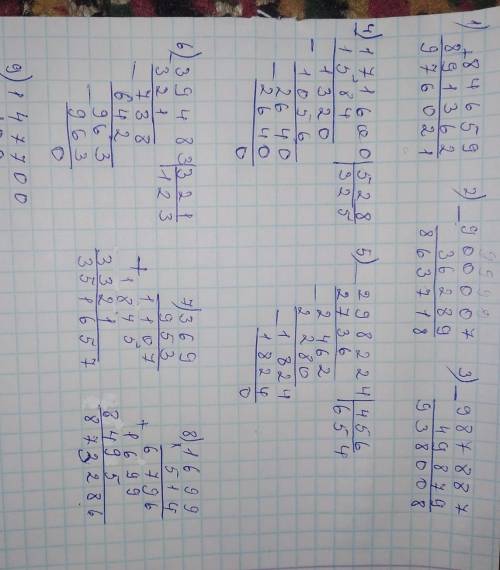 1) + 84659
891362
976021
2) _ 900007
36289
863718
3) _ 987887
49879
938008
4) _ 171600 | 528
1584 | 325
_ 1320
1056
_ 2640
2640
0
5) _ 298224 | 456
2736 | 654
_ 2462
2280
_ 1824
1824
0
6) _ 39483 | 321
321 | 123
_ 738
642
_ 963
963
0
7) 369
953
1107
+ 1845
3321
351657
8) 1699
x 514
6796
+ 1699
8495
873286
9) 147700